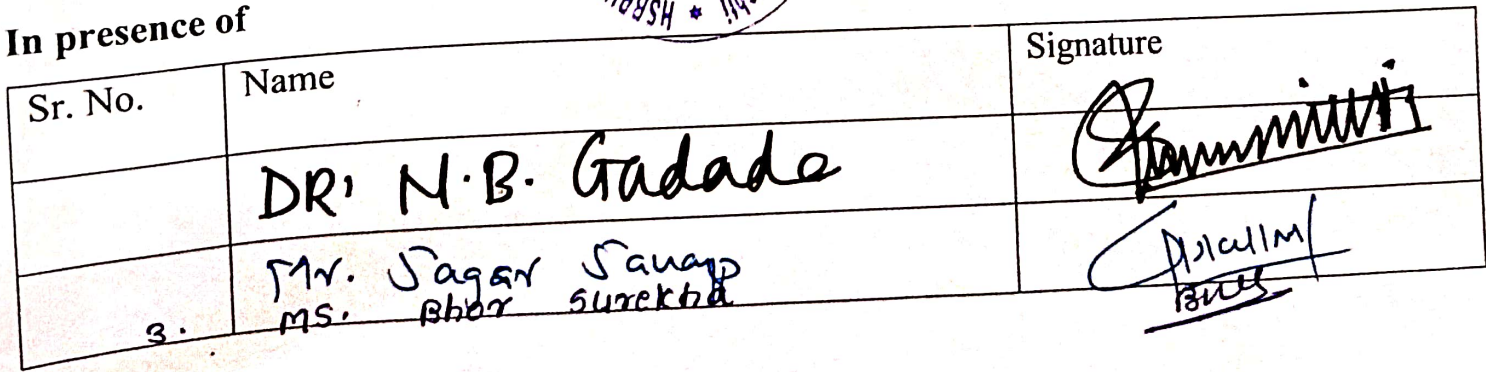 In presence of
Sr. No. Name Signature
DR. N.B. Gadade
Mr. Sagar Sanap
3. MS. Bhor Surekha